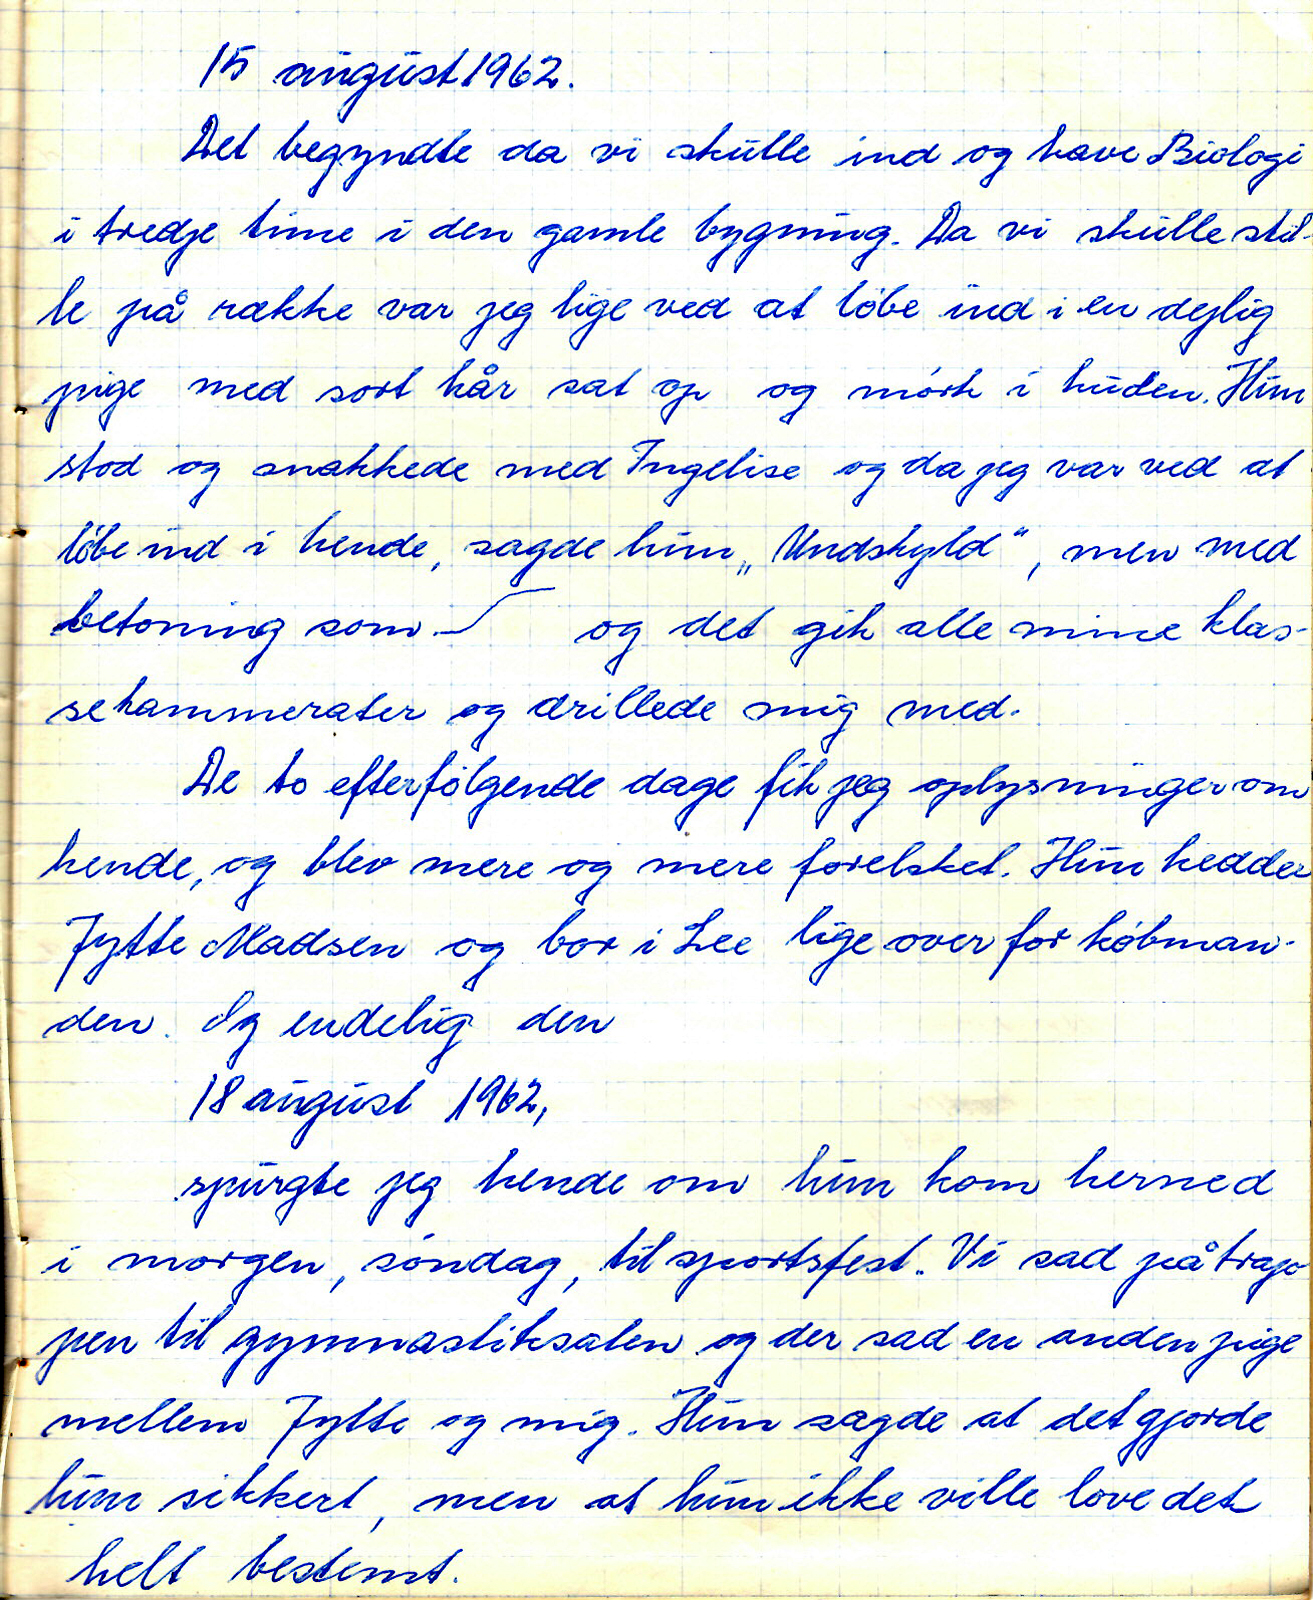 15 august 1962.
Det begyndte da vi skulle ind og have Biologi
i tredje time i den gamle bygning. Da vi skulle stil-
le på række var jeg lige ved at løbe ind i en dejlig
pige med sort hår sat op og mørk i huden. Hun
stod og snakkede med Ingelise og da jeg var ved at
løbe ind i hende, sagde hun „Undskyld“, men med
betoning som og det gik alle mine klas-
sekammerater og drillede mig med.
De to efterfølgende dage fik jeg oplysninger om
hende, og blev mere og mere forelsket. Hun hedder
Jytte Madsen og bor i Lee lige over for købman-
den. Og endelig den
18 august 1962,
spurgte jeg hende om hun kom herned
i morgen, søndag, til sportsfest. Vi sad på trap
pen til gymnastiksalen og der sad en anden pige
mellem Jytte og mig. Hun sagde at det gjorde
hun sikkert, men at hun ikke ville love det
helt bestemt.